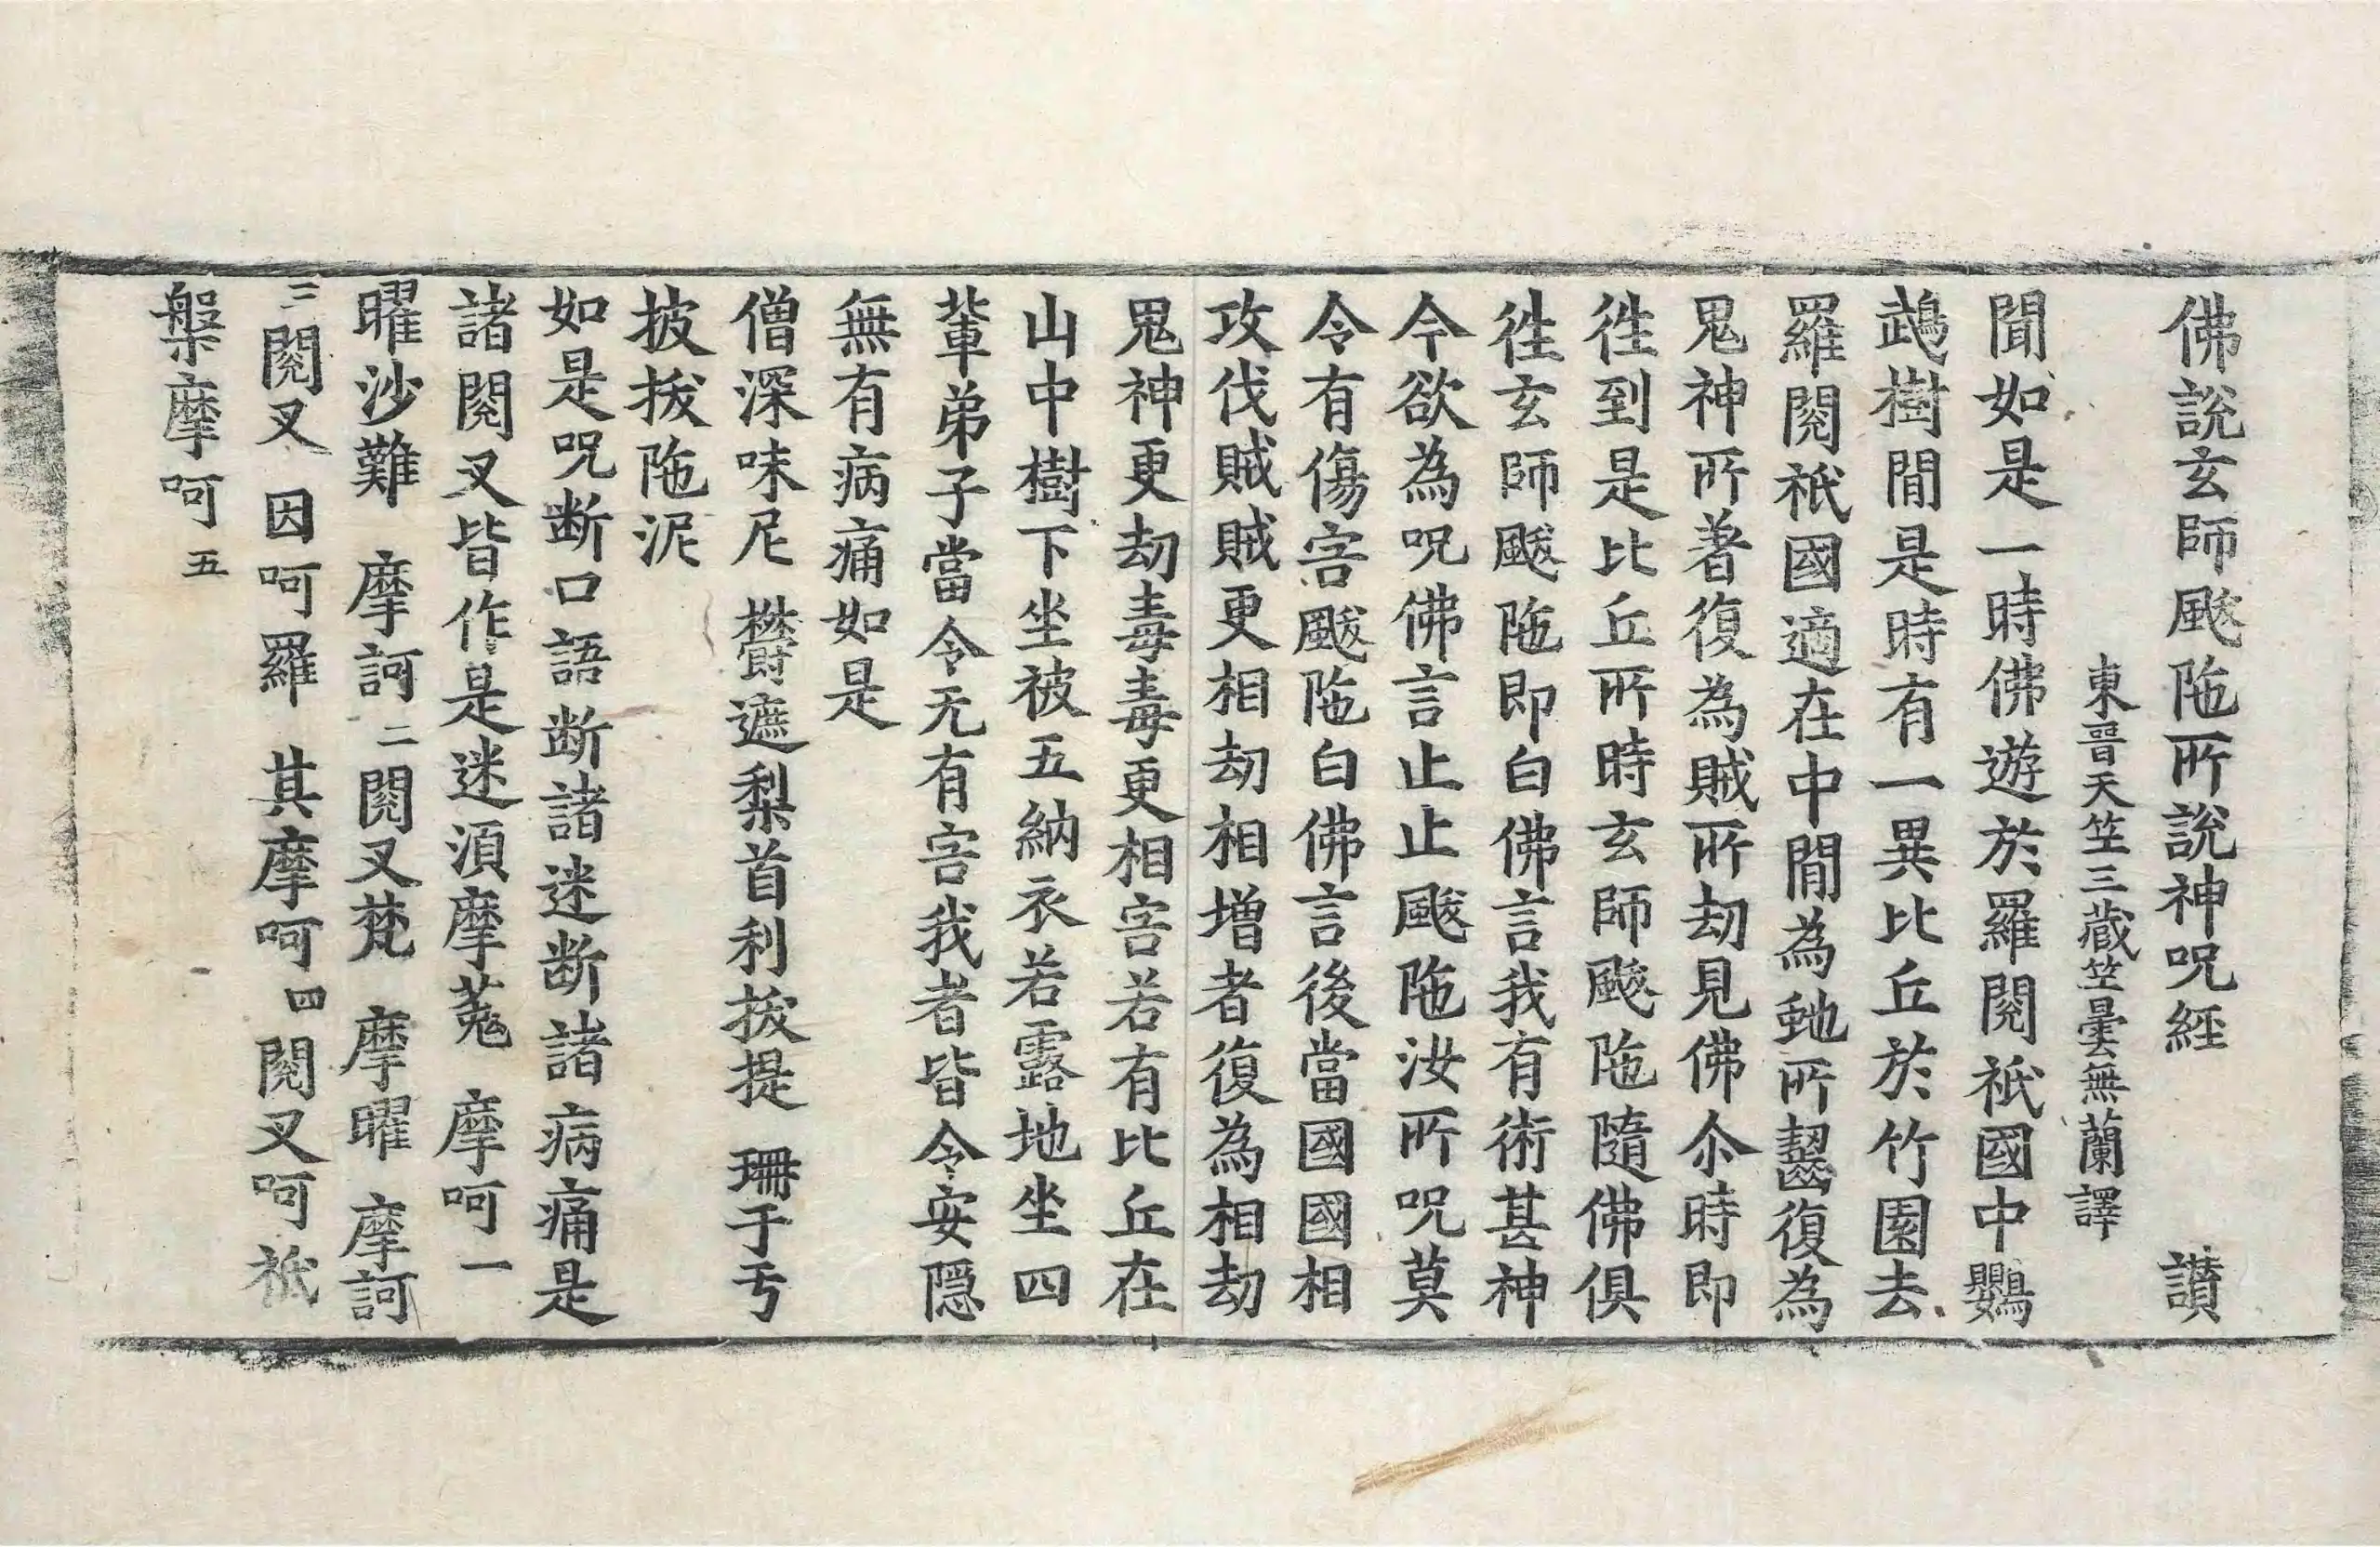 佛說玄師颰陁所說神呪經　讃
東晉天竺三藏竺曇無蘭譯
聞如是一時佛遊於羅閱祇國中鸚
鵡樹間是時有一異比丘於竹園去
羅閱祇國適在中間為虵所齧復為
鬼神所著復為賊所劫見佛尒時即
徃到是比丘所時玄師颰陁隨佛俱
徃玄師颰陁即白佛言我有術甚神
今欲為呪佛言止止颰陁汝所呪莫
令有傷害颰陁白佛言後當國國相
攻伐賊賊更相劫相增者復為相劫
鬼神更劫毒毒更相害若有比丘在
山中樹下坐被五納衣若露地坐四
輩弟子當令无有害我者皆令安隠
無有病痛如是
僧深味尼　欝遮梨首利拔提　珊于丂
披拔陁泥
如是呪断口語断諸迷断諸病痛是
諸閱叉皆作是迷湏摩蒐　摩呵一
曜沙難　摩訶二閱叉梵　摩曜　摩訶
三閱叉　因呵羅　其摩呵四閱叉呵祇
槃摩呵五